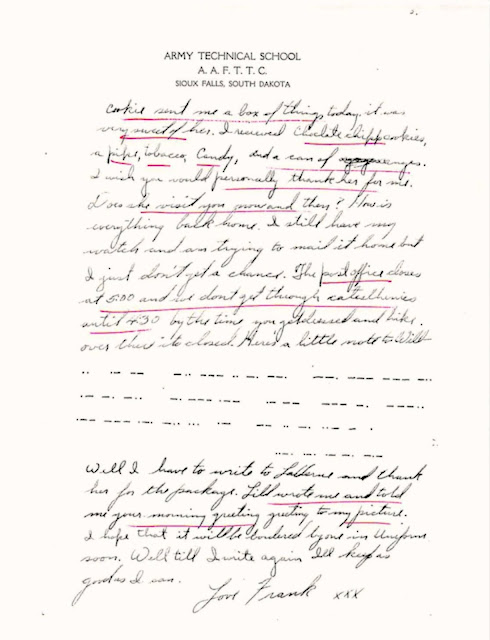 2.
ARMY TECHNICAL SCHOOL
A. A. F. T. T. C.
SIOUX FALLS, SOUTH DAKOTA
Cookie sent me a box of things today, it was
very sweet of her. I received Choclate chipp cookies,
a pipe, tobacco, Candy, and a can of
I wish you would personally thank her for me.
Does she visit you now and then? How is
everything back home. I still have my
watch and am trying to mail it home but
I just don't get a chance. The post office closes
at 5:00 and we dont get through calesthenics
until 4:30 by the time you get dressed and hike
over there its closed. Here's a little note to Will
Well I have to write to LaVerne and thank
her for the package. Lill wrote me and told
me your morning greeting greeting to my picture.
I hope that it will be bordered by one in Uniform
soon. Well till I write again Ill keep as
good as I can.
Love Frank xxx